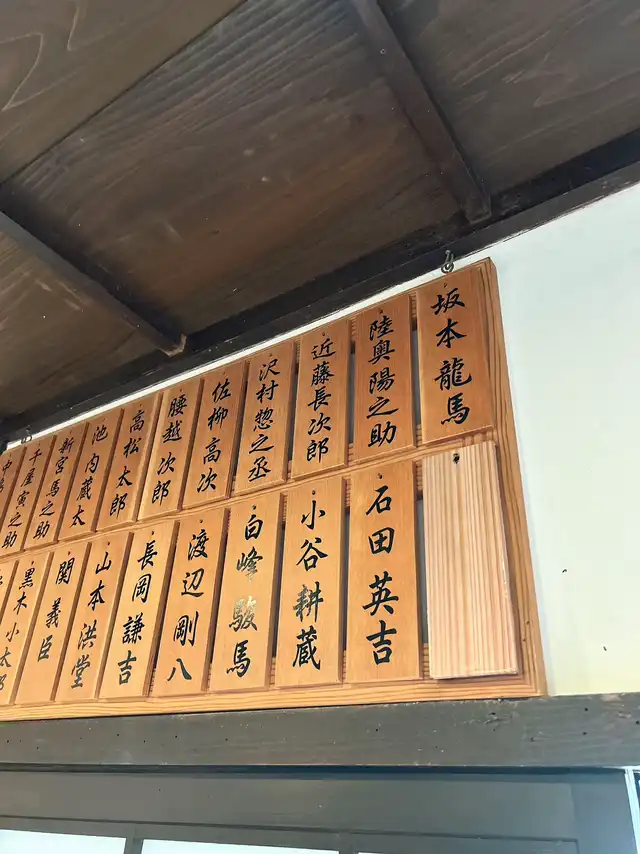 坂本龍馬
陸奥陽之助
近藤長次郎
沢村惣之丞
佐柳高次
腰越次郎
高松太郎
池内蔵太
新宮馬之助
千屋寅之助
石田英吉
小谷耕蔵
白峰駿馬
渡辺剛八
長岡謙吉
山本洪堂
関義臣
黒木小太郎